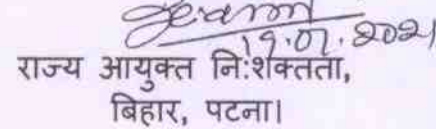 19.07.2021
राज्य आयुक्त नि:शक्तता,
बिहार, पटना।